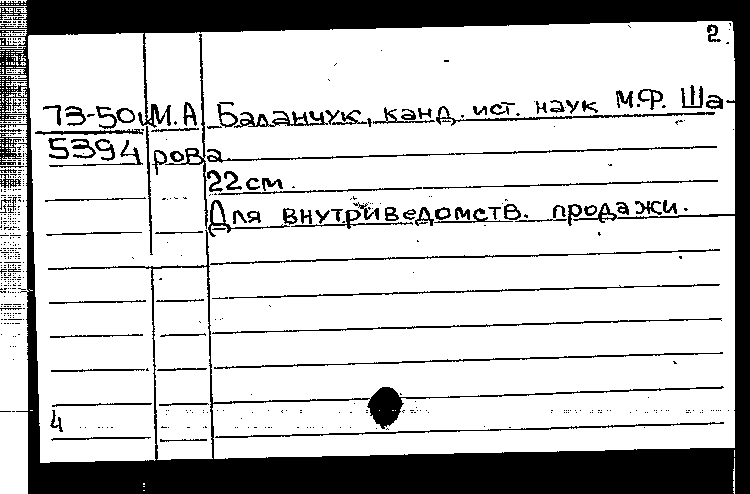 2
73-50 М.А. Баланчук, канд. ист. наук М.Ф. Ша-
5394 рова
22 см.
Для внутриведомств. продажи.
4